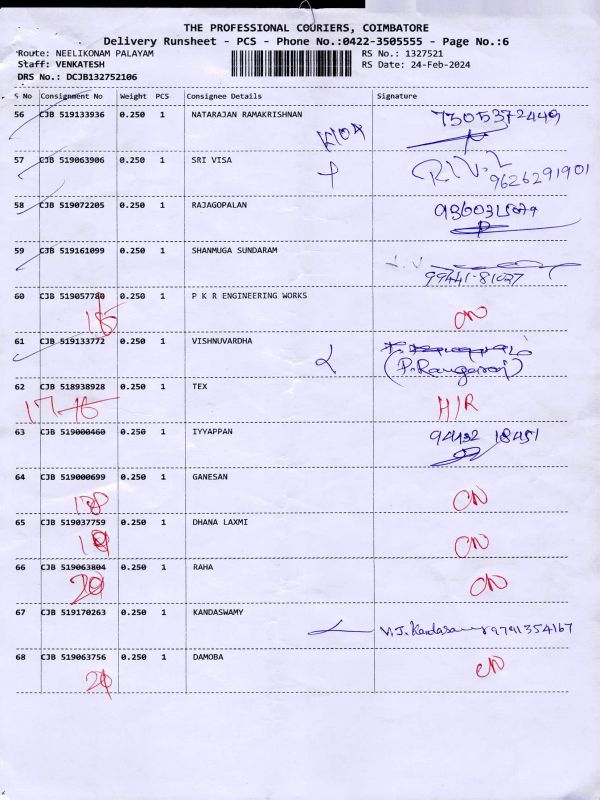 THE PROFESSIONAL COURIERS, COIMBATORE
Delivery Runsheet - PCS - Phone No.:0422-3505555 - Page No.:6
Route: NEELIKONAM PALAYAM RS No.: 1327521
Staff: VENKATESH RS Date: 24-Feb-2024
DRS No.: DCJB132752106
S No Consignment No Weight PCS Consignee Details Signature
56 CJB 519133936 0.250 1 NATARAJAN RAMAKRISHNAN 7305372449
57 CJB 519063906 0.250 1 SRI VISA
9626291901
58 CJB 519072205 0.250 1 RAJAGOPALAN
59 CJB 519161099 0.250 1 SHANMUGA SUNDARAM
99441-81027
60 CJB 519057780 0.250 1 P K R ENGINEERING WORKS
CN
61 CJB 519133772 0.250 1 VISHNUVARDHA
(P. Rangaraj)
62 CJB 518938928 0.250 1 TEX
H/R
63 CJB 519000460 0.250 1 IYYAPPAN 94432 18451
64 CJB 519000699 0.250 1 GANESAN
CN
65 CJB 519037759 0.250 1 DHANA LAXMI
CN
66 CJB 519063804 0.250 1 RAHA
CN
67 CJB 519170263 0.250 1 KANDASWAMY
V.J. Kandasamy 9791354167
68 CJB 519063756 0.250 1 DAMOBA
CN